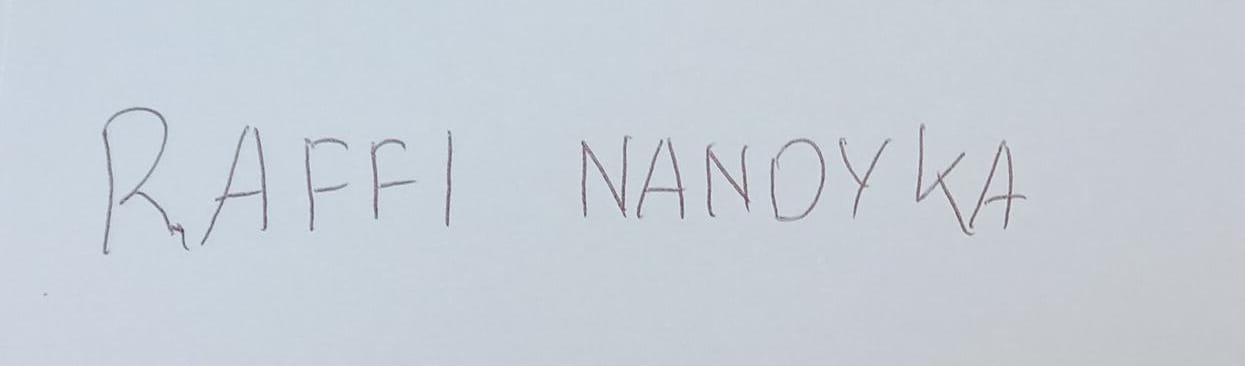 RAFFI NANDYKA